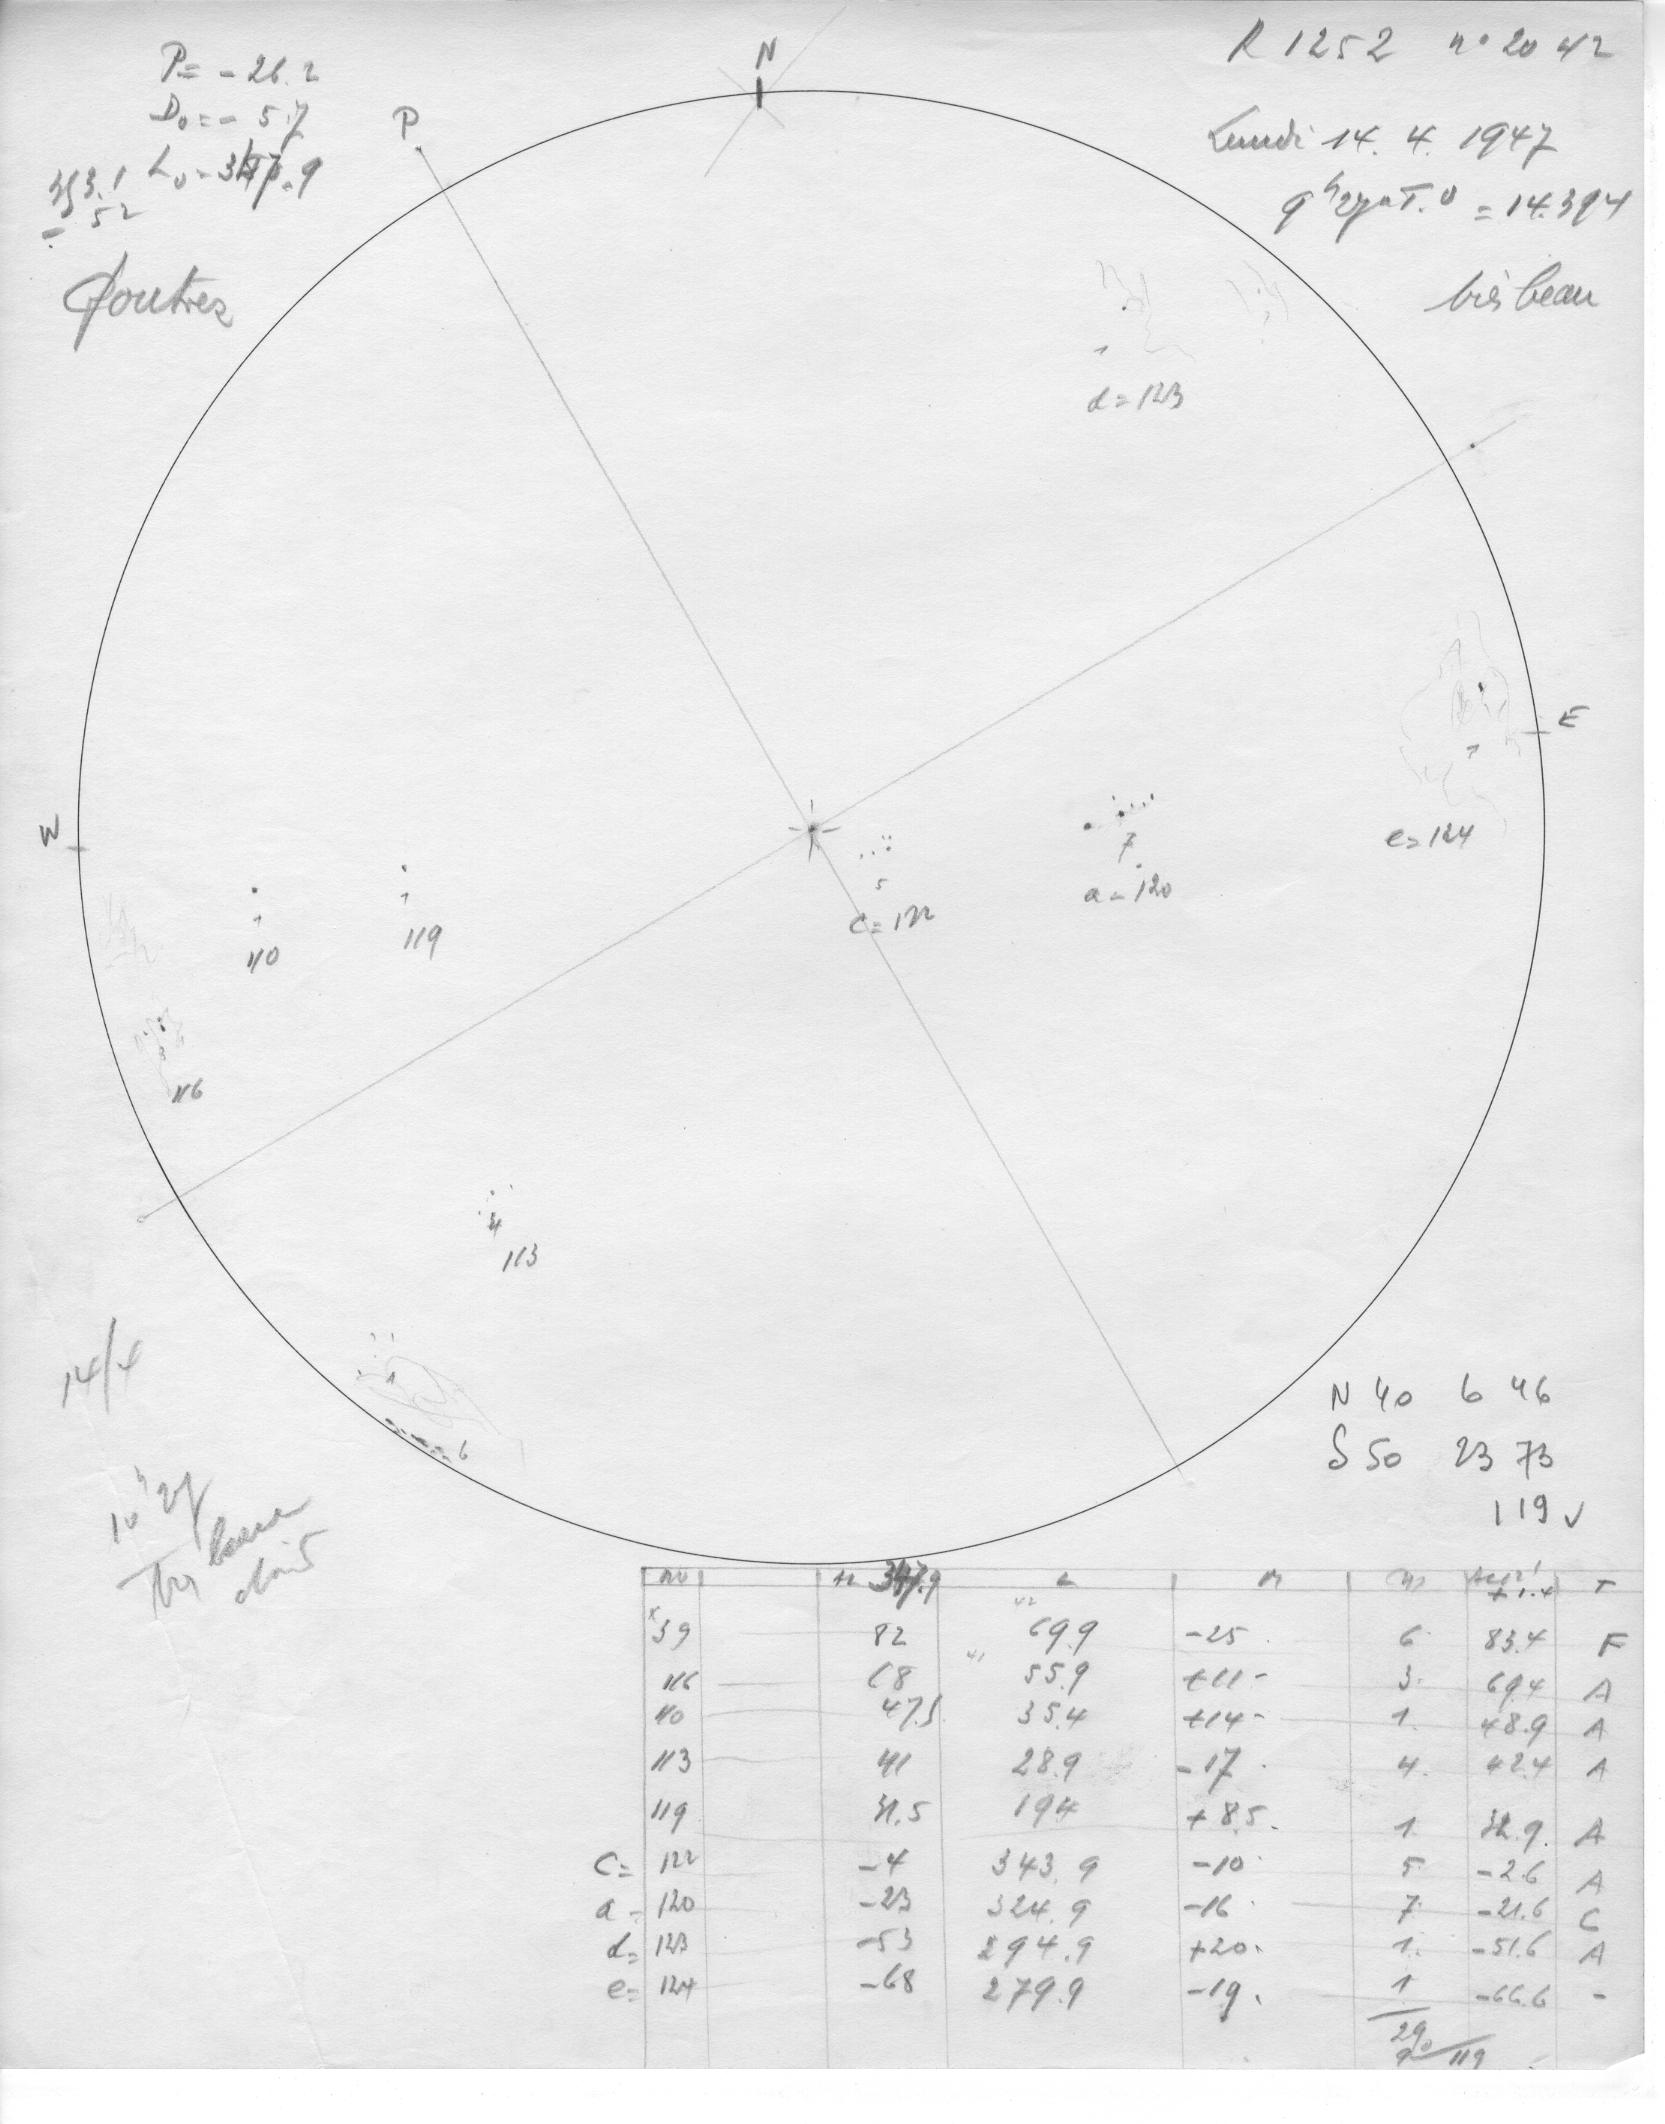 R 1252 n° 20 42
P = -26.2
D₀ = -5.7
L₀ = 347.9
353.1
- 52
Lundi 14. 4. 1947
T.U = 14.394
très beau
N
P
E
W
d = 123
1
7
a = 120
5
c = 122
1
e = 124
1
110
1
119
3
116
4
113
1
6
14/4
N 40 6 46
S 50 23 73
119 v
347.9 L
39 82 69.9 -25 6 83.4 F
116 68 55.9 +11 3 69.4 A
110 47.5 35.4 +14 1 48.9 A
113 41 28.9 -17 4 42.4 A
119 31.5 19.4 +8.5 1 32.9 A
c = 122 -4 343.9 -10 5 -2.6 A
a = 120 -23 324.9 -16 7 -21.6 C
d = 123 -53 294.9 +20 1 -51.6 A
e = 124 -68 279.9 -19 1 -66.6 -
29
9 119